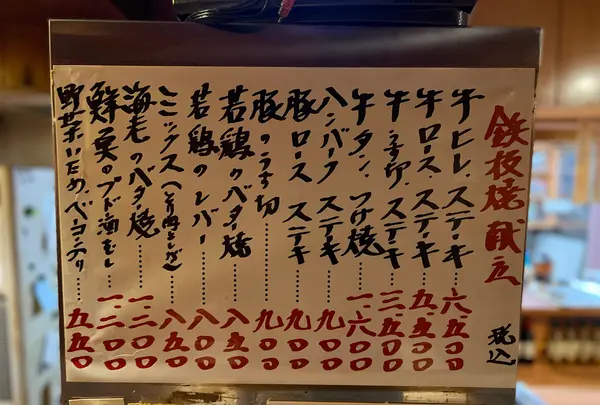 鉄板焼献立 税込
牛ヒレ、ステーキ……六、五〇〇
牛ロース、ステーキ……五、五〇〇
牛うす切、ステーキ……三、五〇〇
牛タン、つけ焼……一、六〇〇
ハンバーク ステーキ……九〇〇
豚ロース ステキ……九〇〇
豚のうす切……九〇〇
若鶏のバター焼……八五〇
若鶏のレバー……八〇〇
ミックス(とり肉とレバ)……八五〇
海老のバタ焼……一、二〇〇
鮮魚のブドー酒むし……一、二〇〇
野菜いため、ベーコン入り……五五〇